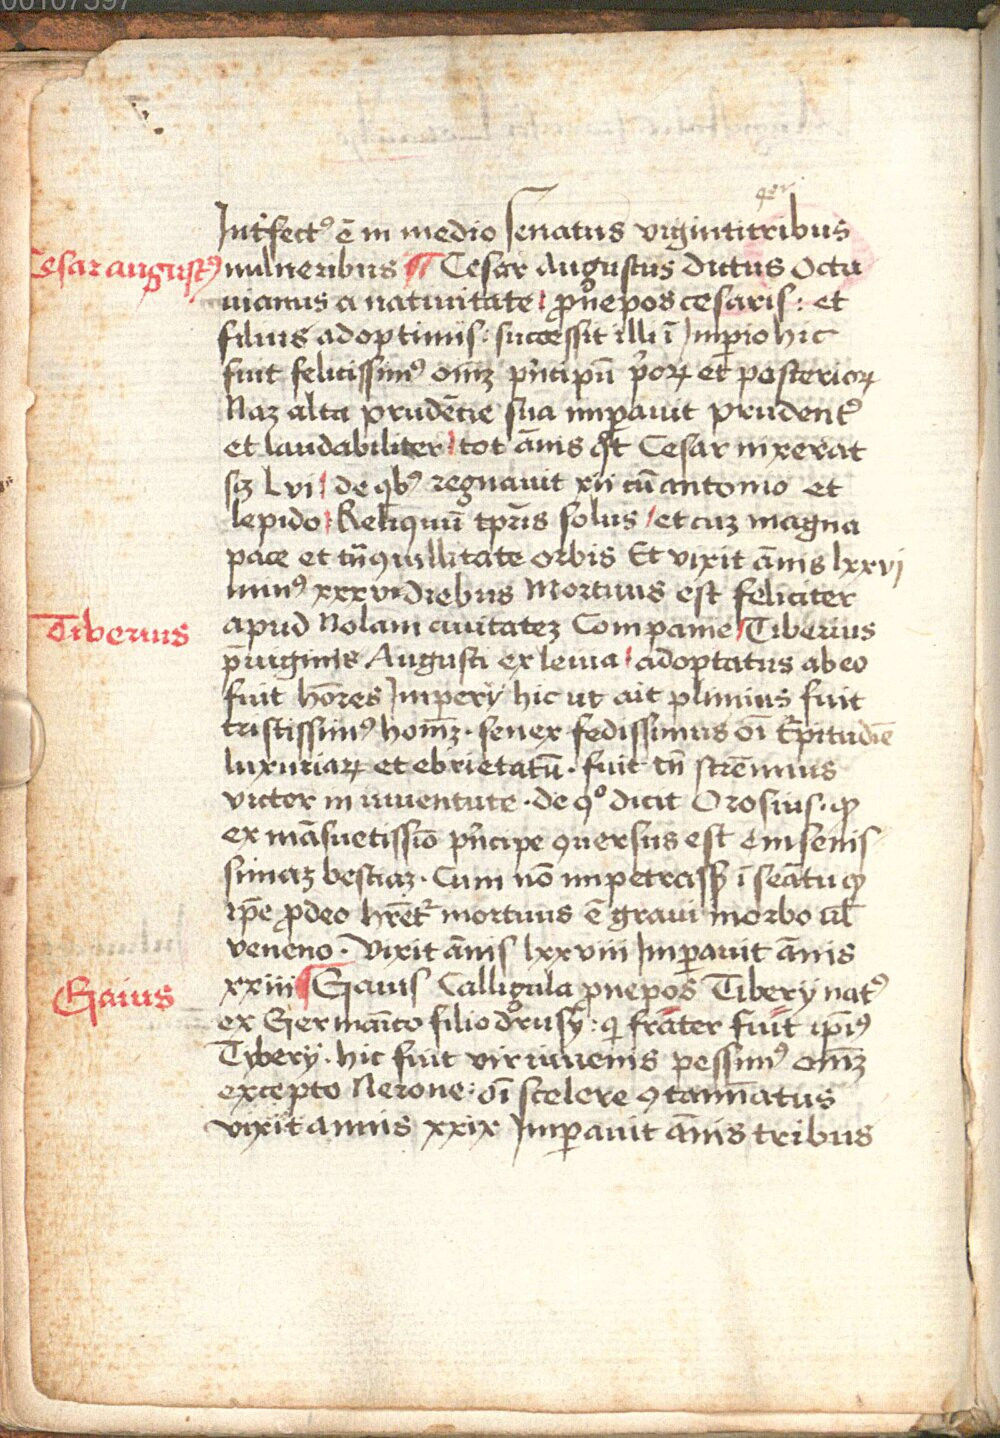 Intʼfectꝰ ē in medio senatus vigintitribus
Cesar augustꝰ
uulneribus ¶ Cesar Augustus dictus Octa
uianus a natiuitate : ꝓnepos cesaris : et
filius adoptiuus : successit illi ī Impio hic
fuit felicissimꝰ om̄ꝫ pͥncipū pͥorꝝ et posteriorꝝ
Naꝫ alta prudētie sua imꝑauit prudentʼ
et laudabiliter / tot ānis qͦt Cesar uixerat
sꝫ Lvi / de qbꝰ regnauit xii cū antonio et
lepido / Reliquū tꝑis solus / et cuꝫ magna
pace et tͣnquillitate orbis Et vixit ānis lxxvj
minꝰ xxxv diebus Mortuus est feliciter
Tiberius
apud Nolam ciuitateꝫ Companie / Tiberius
p̄uignus Augusti ex leuia / adoptatus ab eo
fuit hēres Imperÿ hic ut ait plinius fuit
tristissimꝰ homꝫ . senex fedissimus oī tʼpitudīe
luxuriarꝝ et ebrietatū . fuit tn̄ strēnuus
victor in iuuentute . de qͦ dicit Orosius . ꝙ
ex māsuetissīo pͥncipe ꝯuersus est in seuis
simaꝫ bestiaꝫ . Cum nō impetrassꝫ ī senātu ꝙ
ip̄e ꝓ deo hr̄etʼ mortuus ē graui morbo ul̄
veneno . Vixit ānis lxxviii Imꝑauit ānis
Gaius
xxiii ¶ Gaius Calligula ꝓnepos Tiberÿ natꝰ
ex Germāico filio drusÿ : qi frater fuit ip̄iꝰ
Tyberÿ . hic fuit vir iuuenis pessimꝰ om̄ꝫ
excepto Nerone : oī scelere ꝯtaminatus
vixit annis xxix Imꝑauit ānis tribus